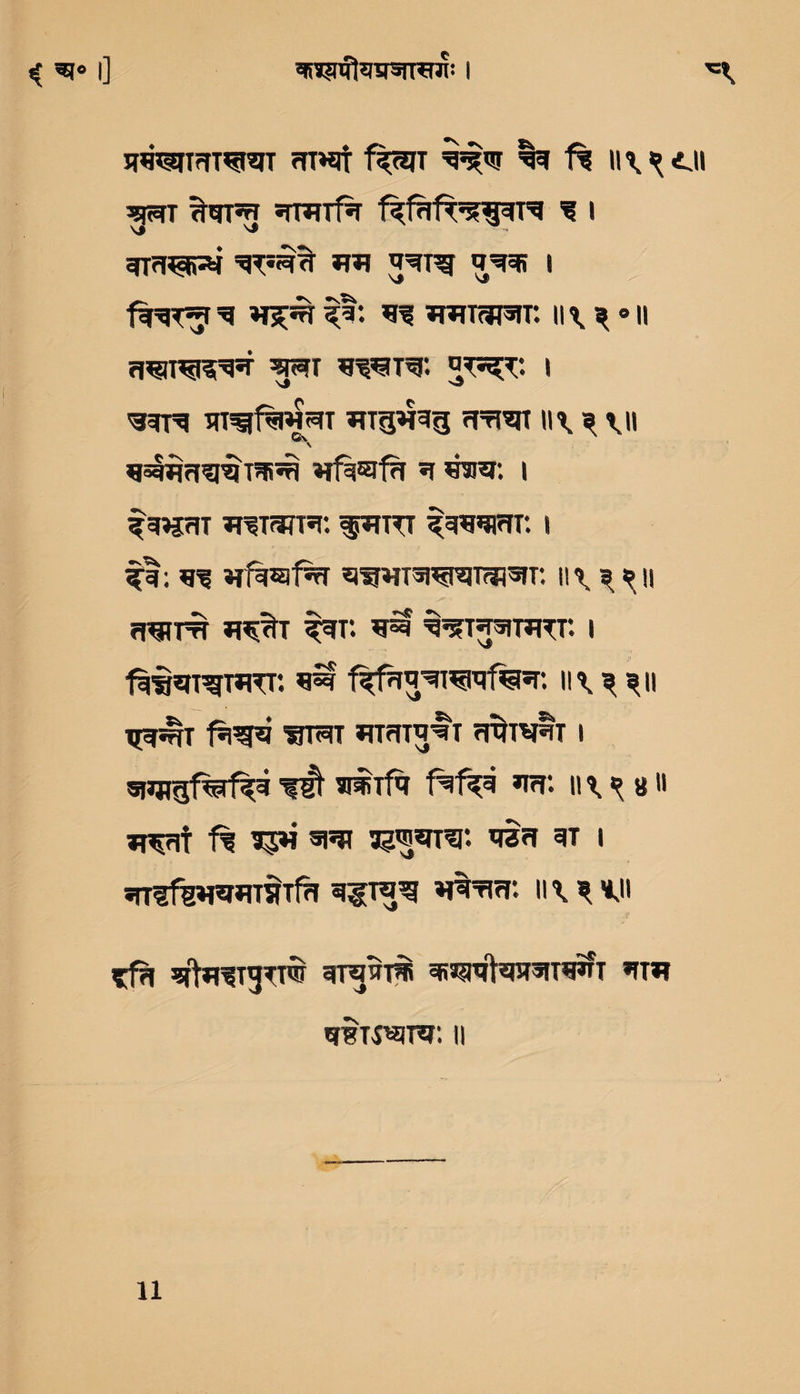 ६ अ० ।] कश्यपीयप्रजासर्गः । ८१
तासां दित्या चेन्द्रेण चैव हि ॥१२९॥
श्रुत्वा तेषान्तु नामानि दितिरिन्द्रमुवाच ह ।
वातस्कन्धं चरन्त्वेते मम पुत्राश्च पुत्रक ।
विचरन्तु च भद्रन्ते देवैः सह ममात्मजाः ॥१३०॥
तस्यास्तद्वचनं श्रुत्वा सहस्राक्षः पुरन्दरः ।
उवाच प्राञ्जलिर्भूत्वा मातर्भवतु तत्तथा ॥१३१॥
सर्वमेतद्यथोक्तन्ते भविष्यति न संशयः ।
देवभूता महात्मानः कुमारा देवसम्मताः ।
देवैः सह भविष्यन्ति यज्ञभाजस्तवात्मजाः ॥१३२॥
तस्मात्ते मरुतो देवाः सर्वे चेन्द्रानुजामराः ।
विज्ञेयाश्चामराः सर्वे दितिपुत्रास्तपस्विनः ॥१३३॥
एवन्तौ निश्चयं कृत्वा मातापुत्रौ तपोधनौ ।
जग्मतुस्त्रिदिवं हृष्टौ शक्रोपि त्रिदिवं गतः ॥१३४॥
मरुतां हि शुभं जन्म शृणुयाद्यः पठेत वा ।
बह्वायुश्च ॥१३५॥
इति श्रीमहापुराणे वायुप्रोक्ते कश्यपीयप्रजासर्गो नाम
षष्ठोऽध्यायः ॥
11